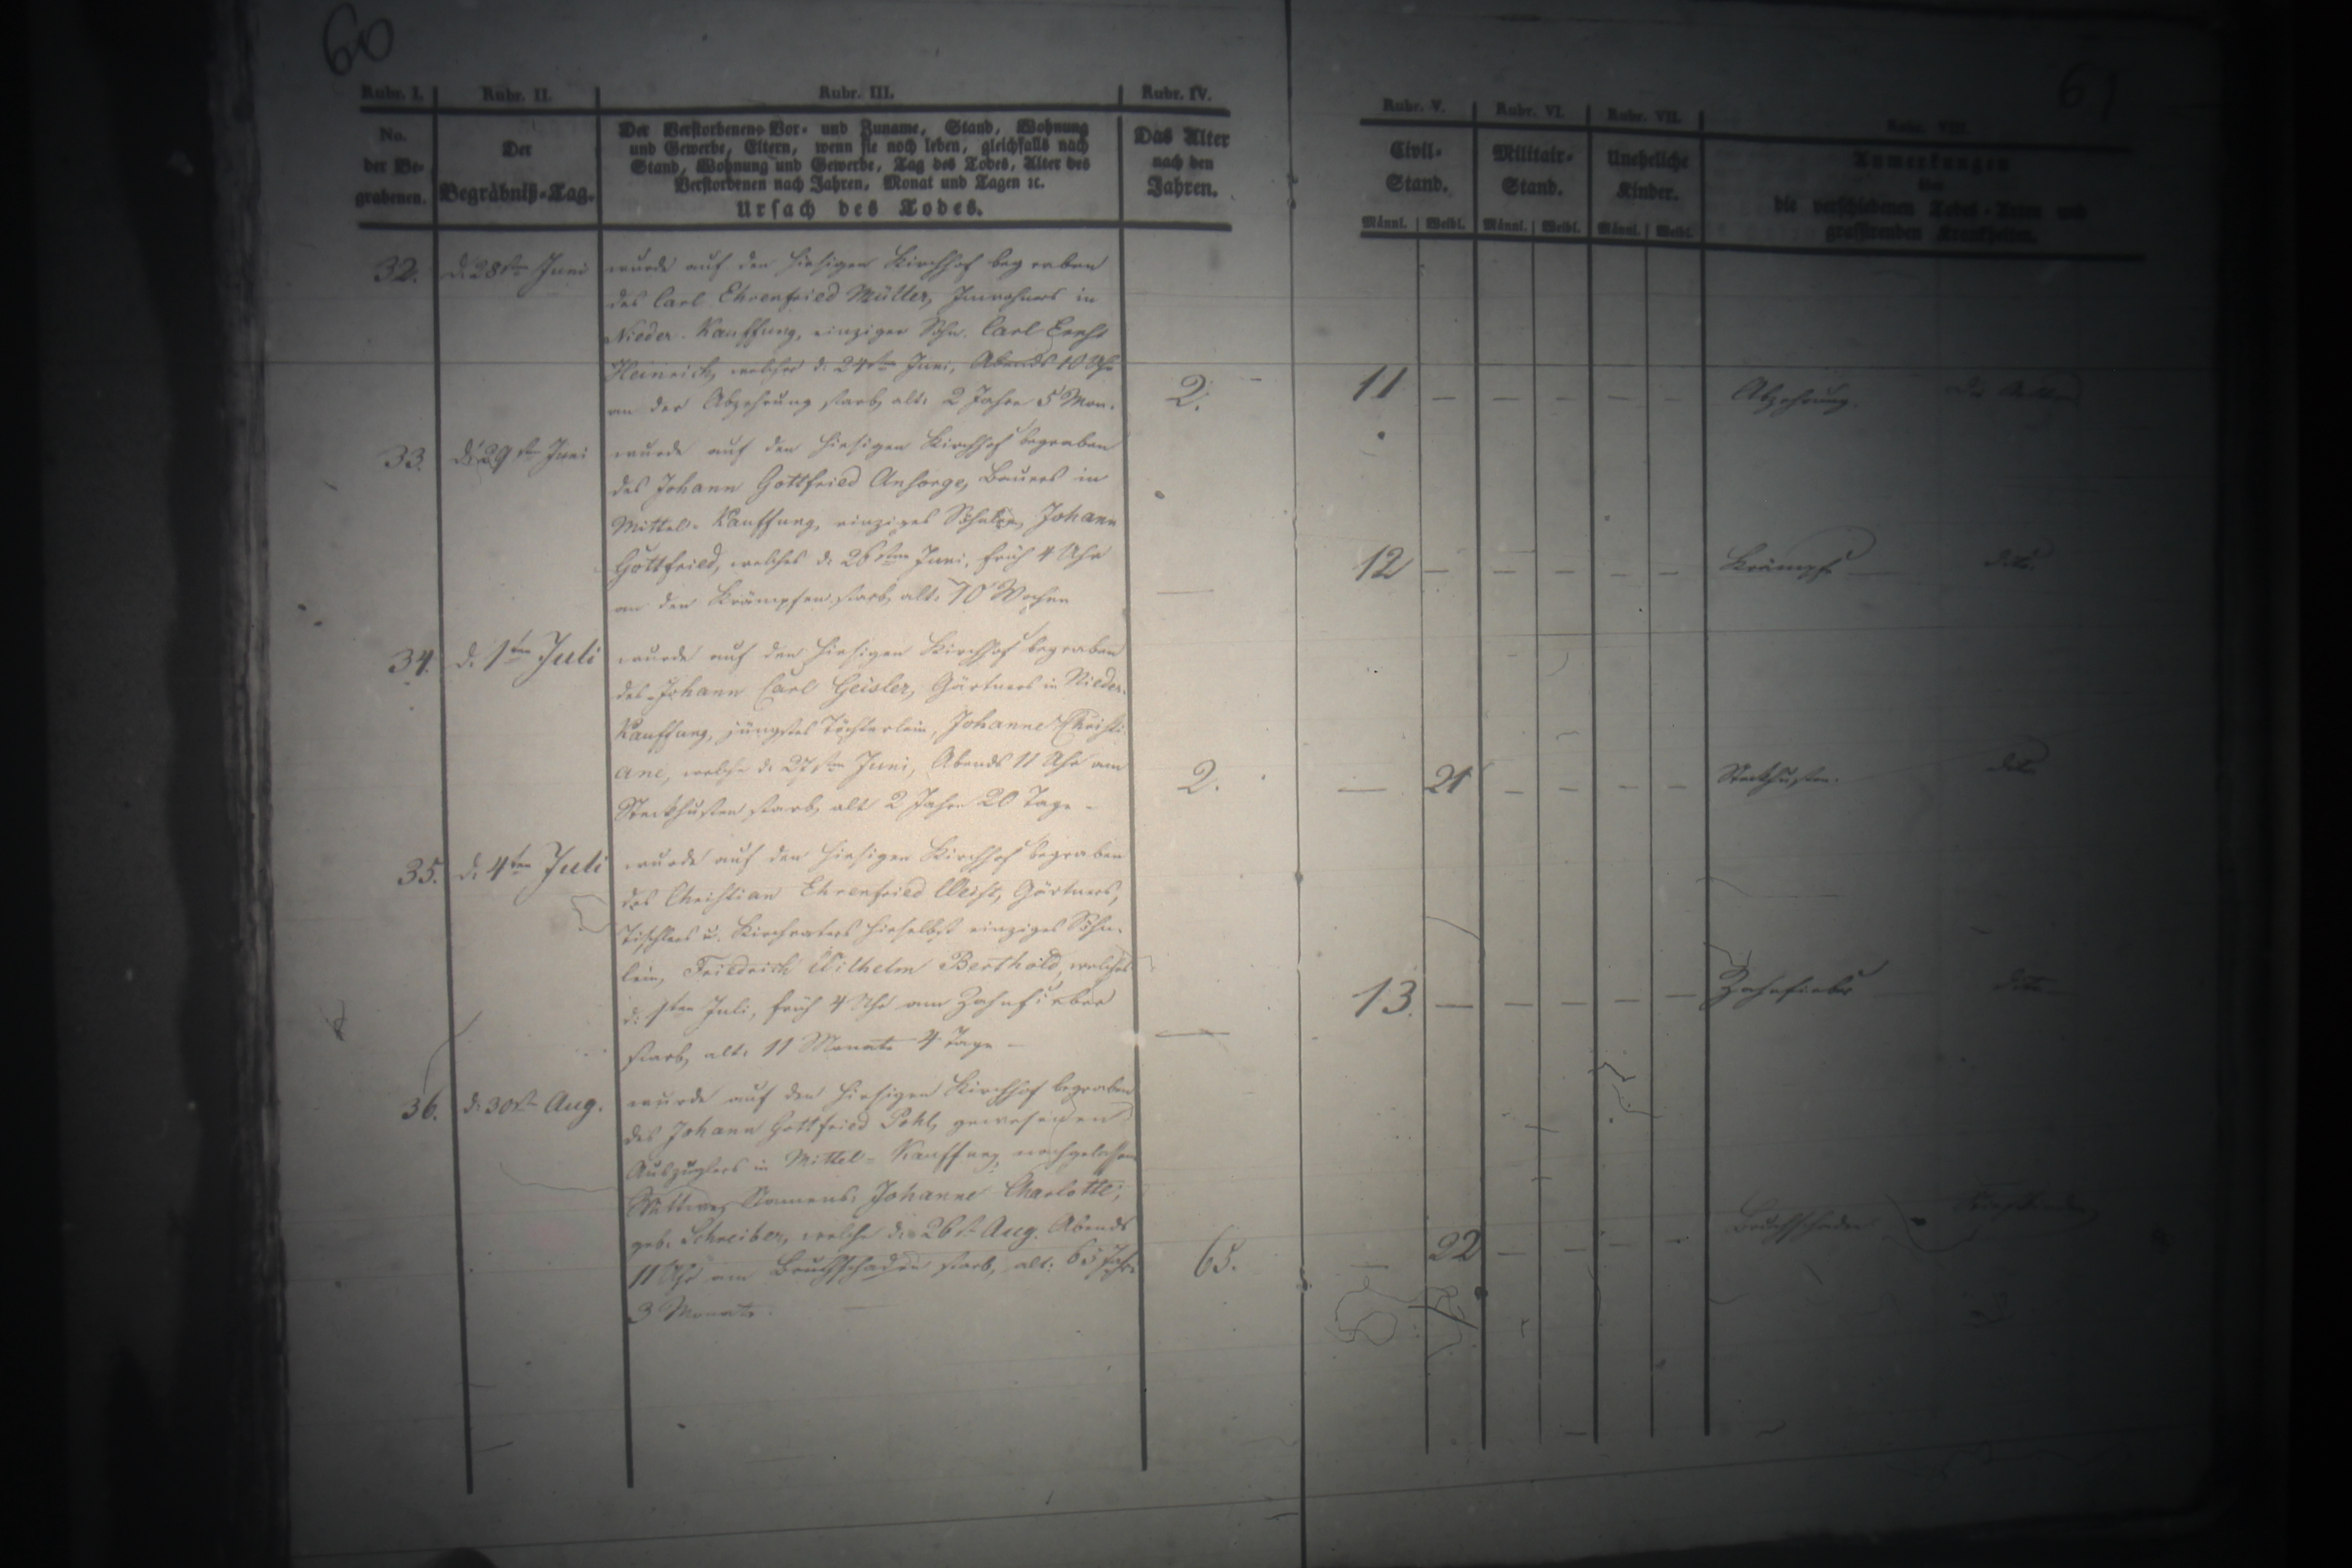 60
61
Rubr. I. Rubr. II. Rubr. III. Rubr. IV. Rubr. V. Rubr. VI. Rubr. VII. Rubr. VIII.
No. der Be- grabenen.
Der Begräbniß-Tag.
Der Verstorbenen Vor- und Zuname, Stand, Wohnung
und Gewerbe, Eltern, wenn sie noch leben, gleichfalls nach
Stand, Wohnung und Gewerbe, Tag des Todes, Alter des
Verstorbenen nach Jahren, Monat und Tagen ꝛc.
Ursach des Todes.
Das Alter nach den Jahren.
Civil- Stand.
Militair- Stand.
Uneheliche Kinder.
Anmerkungen
über
die verschiedenen Todes-Arten und
grassirenden Krankheiten.
Männl. Weibl. Männl. Weibl. Männl. Weibl.
32. d. 28ten Juni wurde auf den hiesigen Kirchhof begraben
des Carl Ehrenfried Müller, Inwohners in
Nieder-Kauffung, einziger Sohn. Carl Ernst
Heinrich, welcher d. 24ten Juni, Abends 10 Uhr
an der Abzehrung starb, alt: 2 Jahre 5 Mon. 2. 11 — — — — — Abzehrung.
33. d. 29ten Juni wurde auf den hiesigen Kirchhof begraben
des Johann Gottfried Ansorge, Bauers in
Mittel-Kauffung, einziges Söhnlein, Johann
Gottfried, welches d. 26ten Juni, früh 4 Uhr
an den Krämpfen starb, alt: 10 Wochen — 12 — — — — — Krämpfe — dito.
34. d. 1ten Juli wurde auf den hiesigen Kirchhof begraben
des Johann Carl Geisler, Gärtners in Nieder-
Kauffung, jüngstes Töchterlein, Johanne Christi-
ane, welche d. 27ten Juni, Abends 11 Uhr am
Steckhusten starb, alt 2 Jahre 20 Tage - 2. — 21 — — — — Steckhusten. dito
35. d. 4ten Juli wurde auf den hiesigen Kirchhof begraben
des Christian Ehrenfried Weist, Gärtners,
Tischlers u. Kirchvaters hieselbst einziges Söhn-
lein, Friedrich Wilhelm Berthold, welches
d. 1ten Juli, früh 4 Uhr am Zahnfieber
starb, alt: 11 Monate 4 Tage — — 13. — — — — — Zahnfieber — dito
36. d. 30ten Aug. wurde auf den hiesigen Kirchhof begraben
des Johann Gottfried Pohl, gewesenen
Auszüglers in Mittel-Kauffung nachgelassene
Wittwe, Namens: Johanne Charlotte,
geb. Schreiber, welche d. 26ten Aug. Abends
11 Uhr am Bruchschaden starb, alt: 65 Jahr
3 Monate. 65. 22 — — — — Bruchschaden